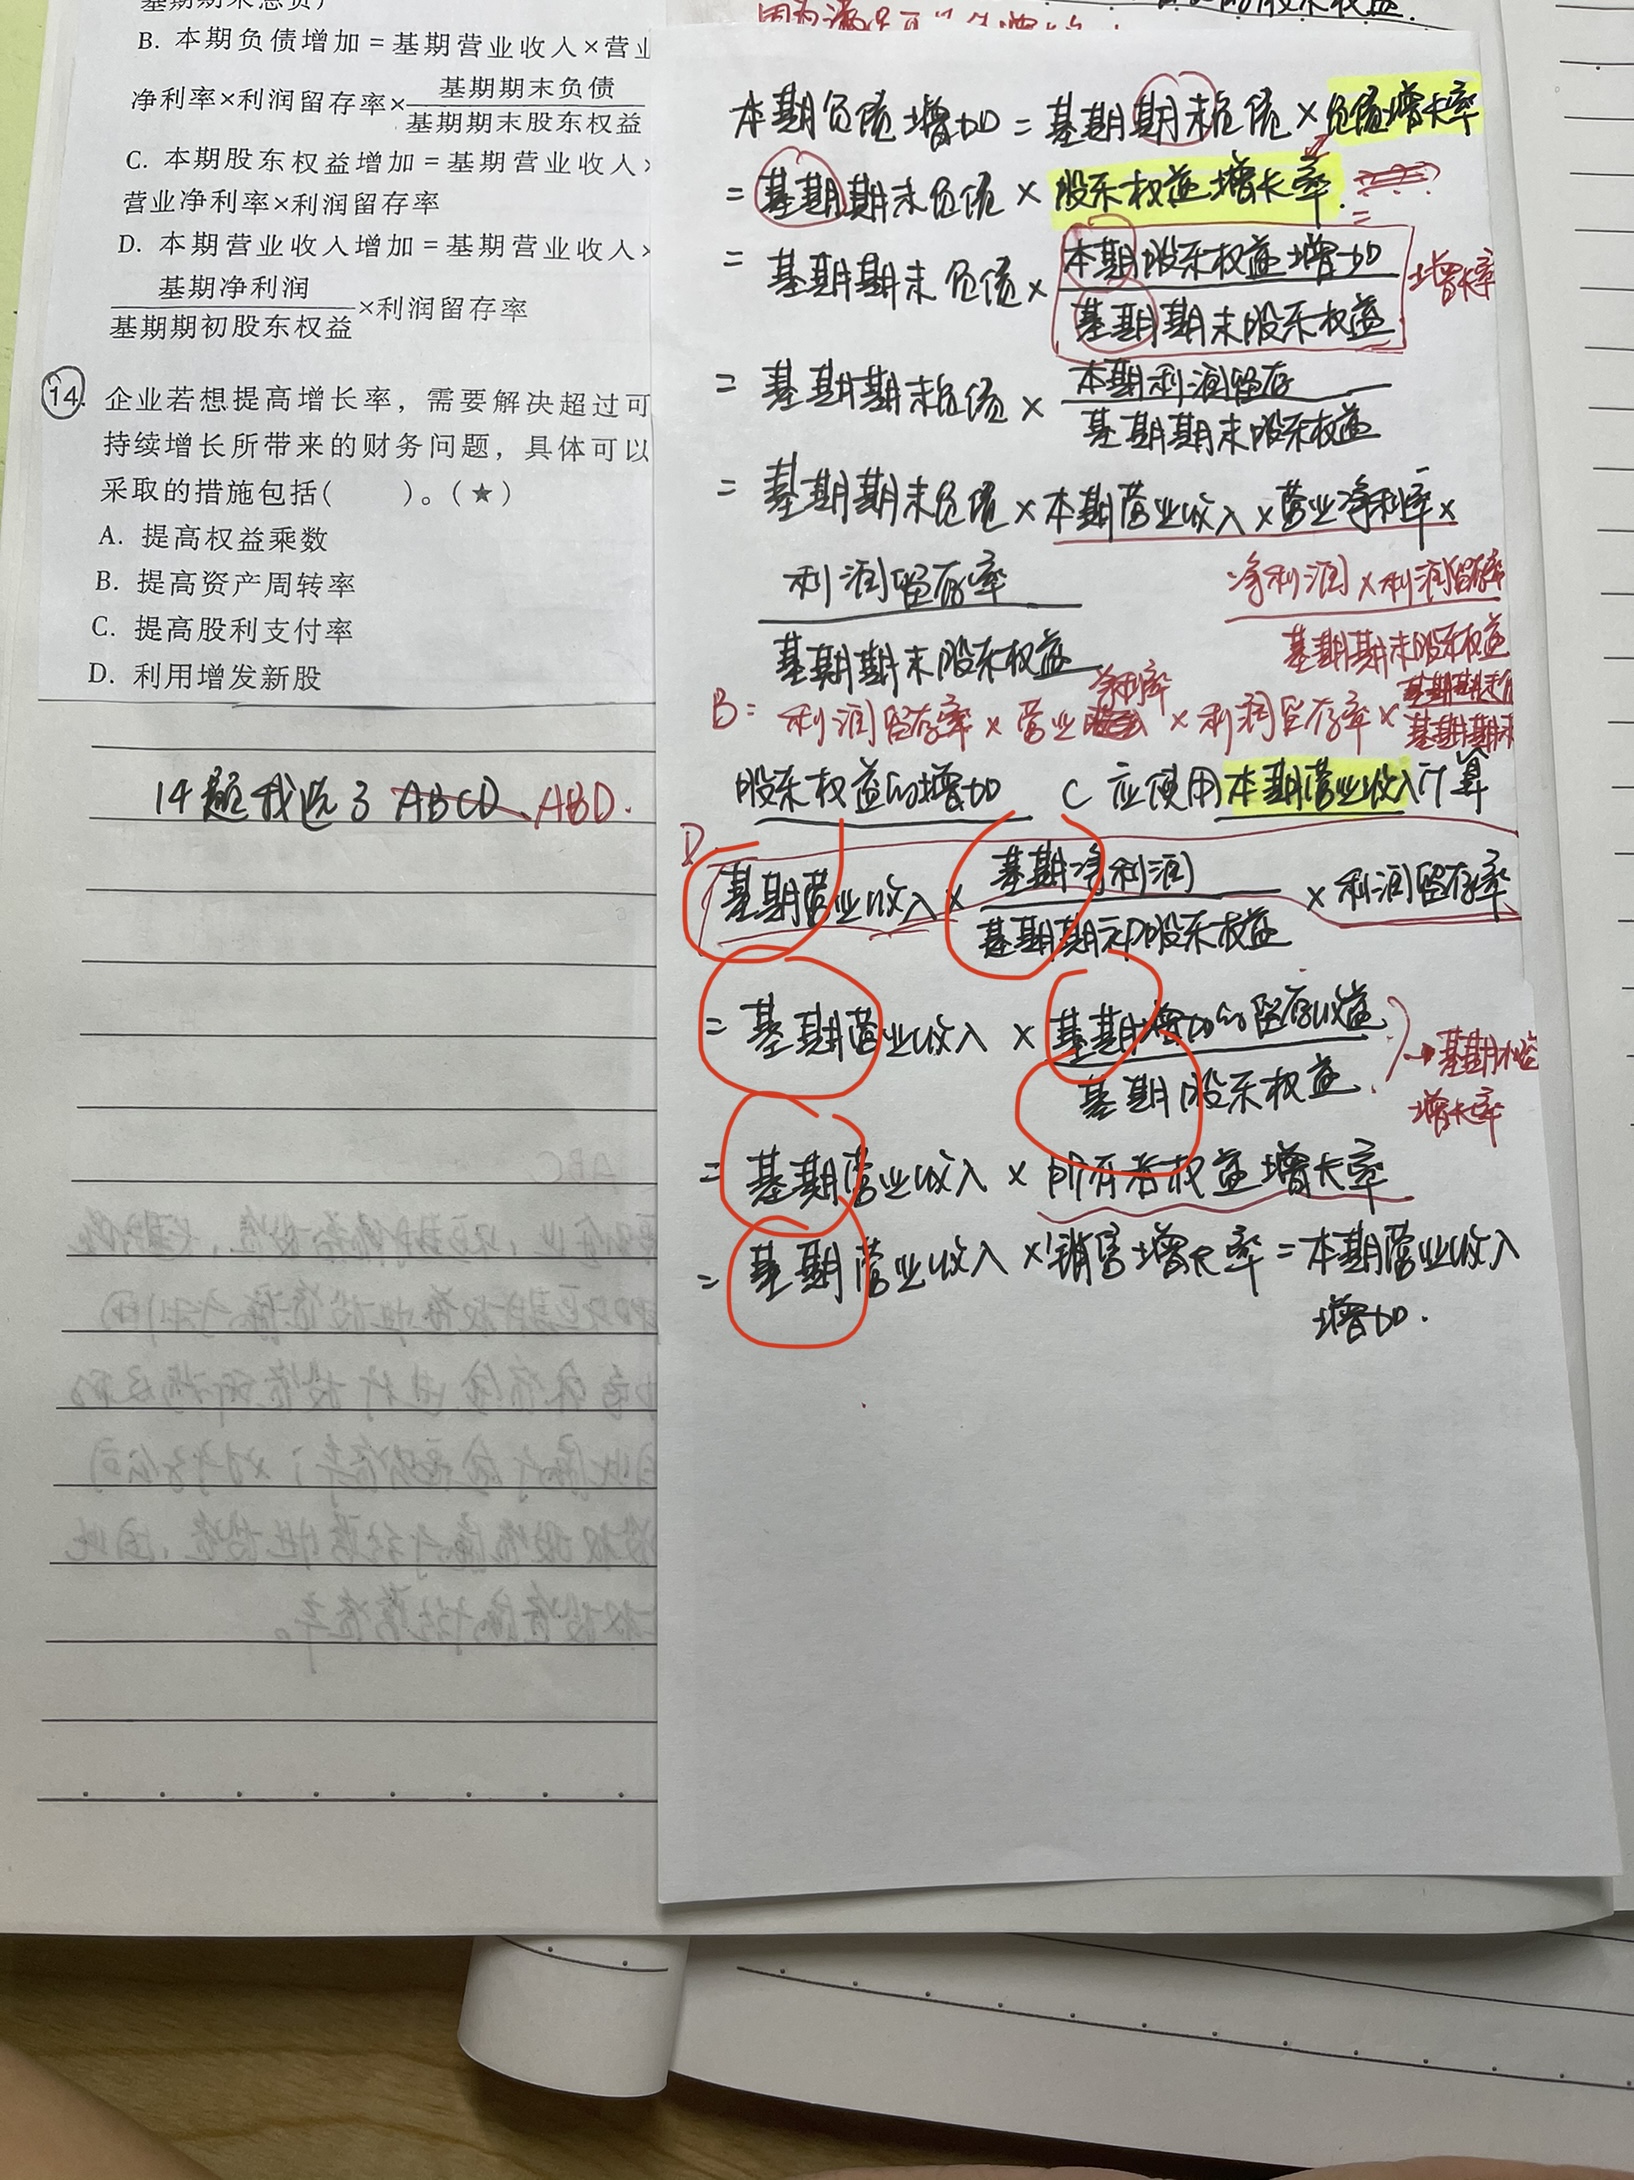 B. 本期负债增加=基期营业收入×营业
净利率×利润留存率×基期期末负债/基期期末股东权益
C. 本期股东权益增加=基期营业收入×
营业净利率×利润留存率
D. 本期营业收入增加=基期营业收入×
基期净利润/基期期初股东权益×利润留存率
14. 企业若想提高增长率，需要解决超过可
持续增长所带来的财务问题，具体可以
采取的措施包括(　　)。(★)
A. 提高权益乘数
B. 提高资产周转率
C. 提高股利支付率
D. 利用增发新股
14题我选了 ABCD ABD.
本期负债增加=基期期末负债×负债增长率
=基期期末负债×股东权益增长率.
=基期期末负债×本期股东权益增加/基期期末股东权益 增长率
=基期期末负债×本期利润留存/基期期末股东权益
=基期期末负债×本期营业收入×营业净利率×
利润留存率/基期期末股东权益
净利润×利润留存率/基期期末股东权益
B: 利润留存率×营业净利率×利润留存率×
股东权益的增加 C 应使用本期营业收入计算
D.
基期营业收入×基期净利润/基期期初股东权益×利润留存率
=基期营业收入×基期增加的留存收益/基期股东权益 → 基期权益
增长率
=基期营业收入×所有者权益增长率
=基期营业收入×销售增长率=本期营业收入
增加.